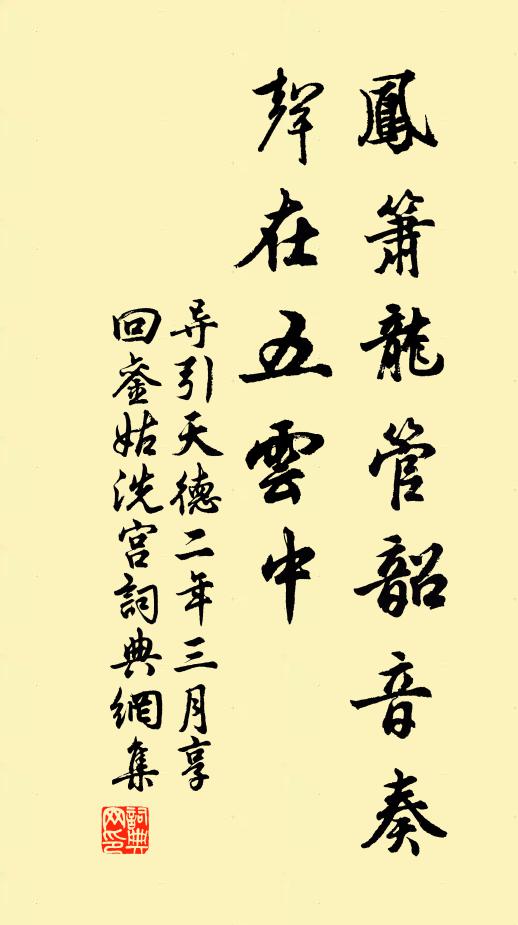 鳳簫龍管韶音奏
聲在五雲中
导引天德二年三月享
回銮姑洗宫詞典網集
詞典
网印